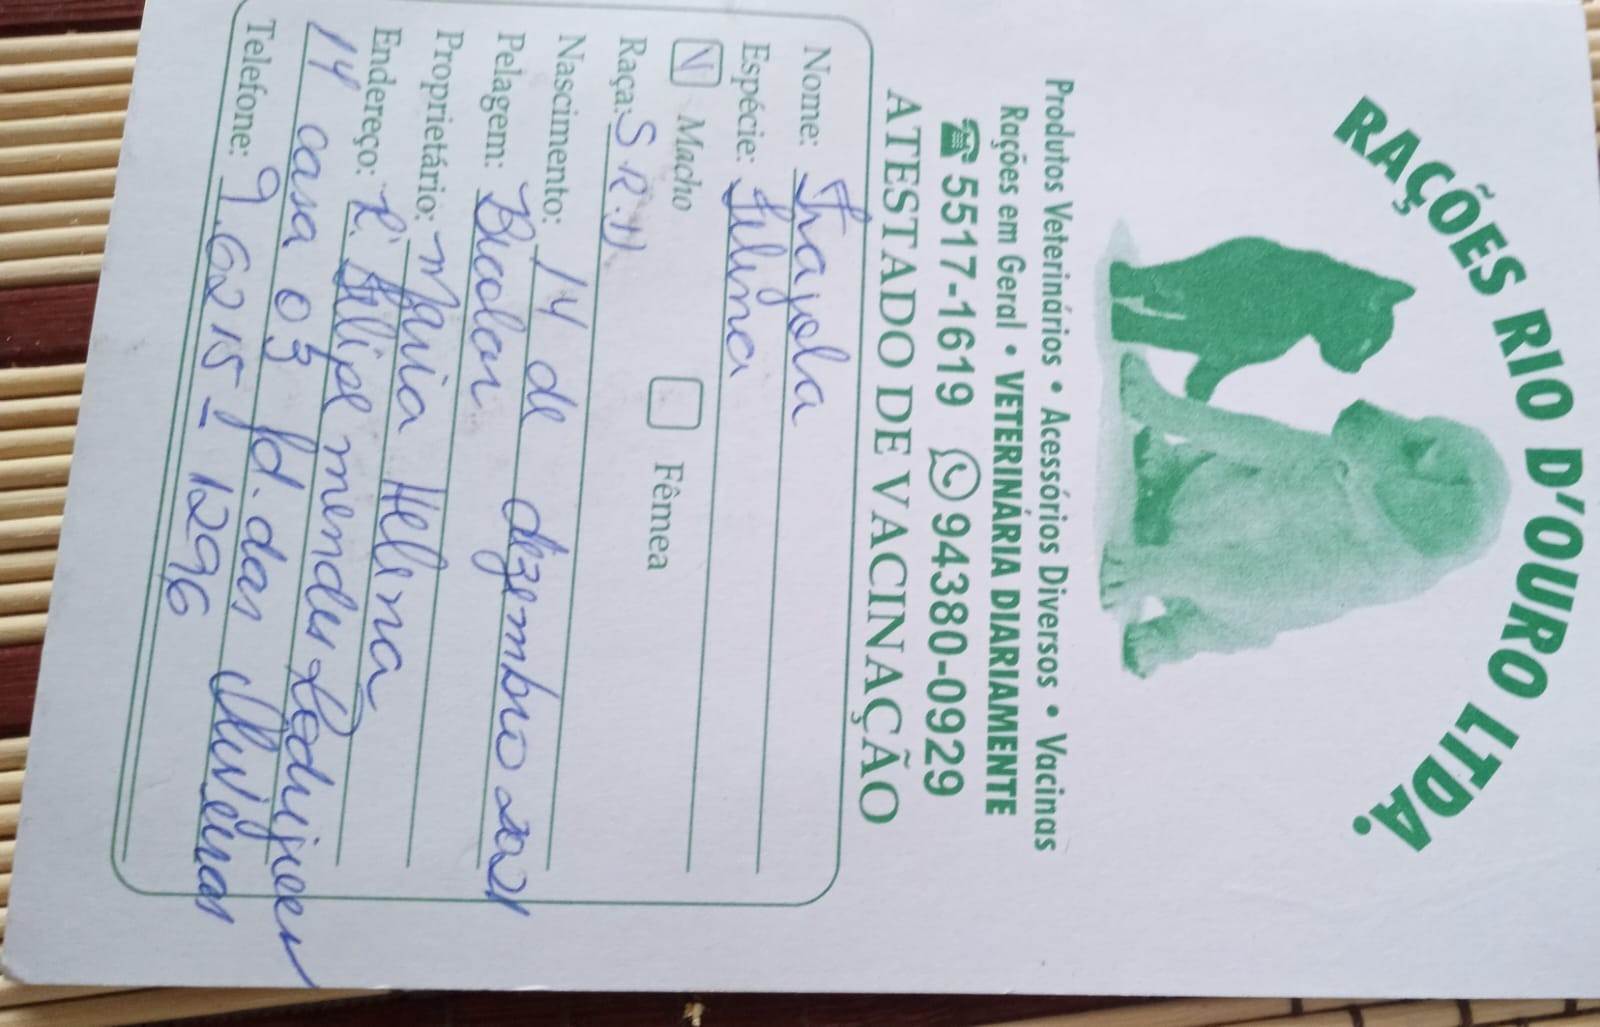 RAÇÕES RIO D'OURO LTDA.
Produtos Veterinários • Acessórios Diversos • Vacinas
Rações em Geral • VETERINÁRIA DIARIAMENTE
5517-1619 94380-0929
ATESTADO DE VACINAÇÃO
Nome: Frajola
Espécie: Felina
Macho Fêmea
Raça: S.R.D
Nascimento: 14 de dezembro 2021
Pelagem: Bicolor
Proprietário: Maria Helena
Endereço: R. Felipe mendes Rodrigues
14 casa 03 Jd. das Oliveiras
Telefone: 9.6215-1296